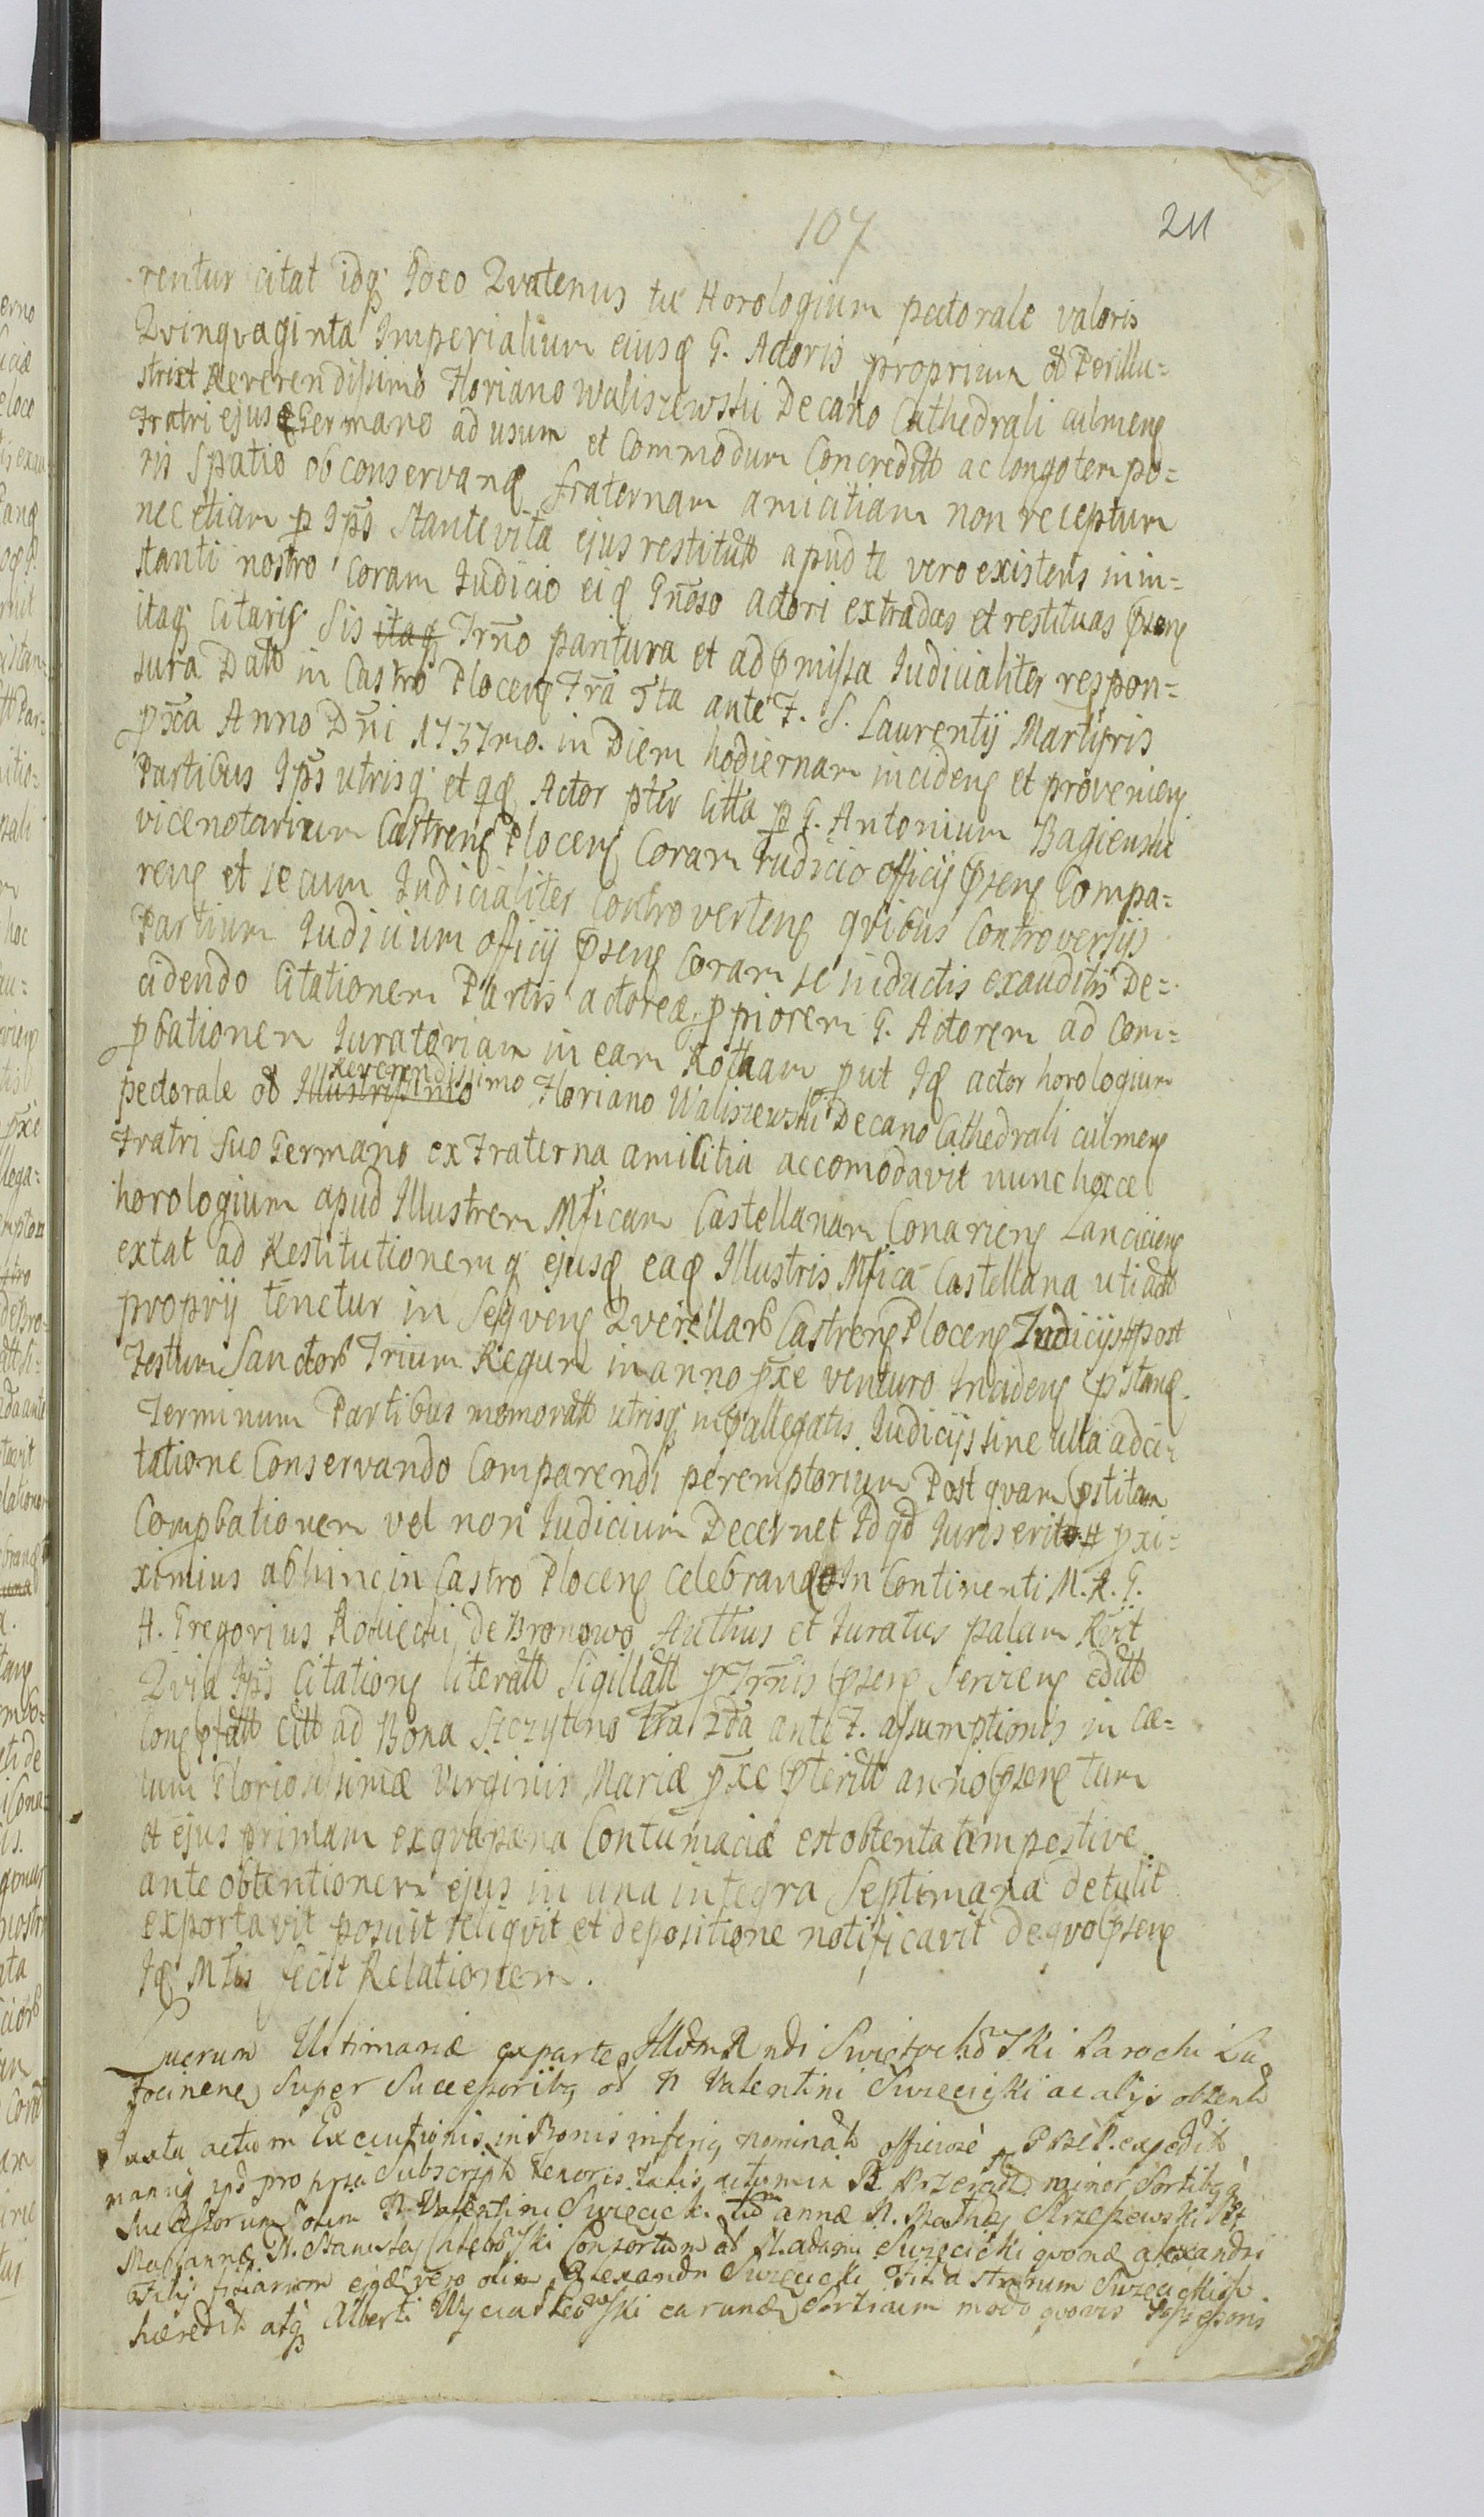 107
211
rentur citat idq ideo Qvatenus tu Horologium pectorale valoris
Qvinqvaginta Imperialium eiusq G. Actoris proprium od Perillu=
stri et Reverendissimo Floriano Waliszewski Decano Cathedrali culmens
Fratri ejusq Germano ad usum et Commodum Concreditt ac longo tempo=
ris Spatio ob conservanq fraternam amicitiam non receptum
nec etiam p Ips stante vita ejus restitutt apud te vero existens in in=
stanti nostro Coram Iudicio eiq Gnoso actori extradas et restituas psens
itaq Citaris sis itaq Trno paritura et ad pmissa Iudicialiter respon=
sura Datt in Castro Plocens Fra 5ta ante F. S. Laurentij Martyris
pxa Anno Dni 1737mo. in Diem hodiernam incidens et proveniens
Partibus Ips utrisq et qq Actor pter Citta p G. Antonium Bagienski
vicenotarium Castrens Plocens Coram Iudicio officij psens Compa=
rens et secum Iudicialiter Controvertens qvibus Controversijs
Partium Iudicium officij psens Coram se inductis exauditis De=
cidendo Citationem Partis actoreæ ppriorem G. Actorem ad Com=
pbationem Iuratoriam in eam Rottam put Iq actor horologium
pectorale od Illustrissimo Reverendissimo Floriano Waliszewski Decano Cathedrali culmens
Fratri suo Germano ex Fraterna amicitia accomodavit nunc hocce
horologium apud Illustrem Mficam Castellanam Conariens Lanciciens
extat ad Restitutionemq ejusq eaq Illustris Mfica Castellana uti actt
proprij tenetur in Seqvens Qverellarb Castrens Plocens Iudicijs # post
Festum Sanctorb Trium Regum in anno pxe venturo Incidens pstanq.
Terminum Partibus memoratt utrisq in pallegatis Iudicijs sine ulla adci=
tatione Conservando Comparendi peremptorium Post qvam pstitam
Compbationem vel non Iudicium Decernet Id qd Iuris erit # pxi=
ximius abhinc in Castro Plocens Celebranq In Continenti M. R. G.
H. Gregorius Rokicki de Bronowo Authus et Iuratus palam Rvit
Qvia Ips Citations literatt Sigillatt p Trnis psens Serviens editt
Cons pstatt Citt ad Bona Szczytno fra 2da ante F. assumptionis in Cæ=
lum Gloriosissimæ Virginis Mariæ pxe pteritt anno psens tum
et ejus primam ex qva pæna Contumaciæ est obtenta tempestive
ante obtentionem ejus in una integra Septimana detulit
exportavit posuit reliqvit et depositione notificavit de qvo psens
Iq Mtis fecit Relationem.
Querum Ultimariæ ex parte Adm Rndi Swiętochowski Parochi Lu
tocinens Super Successoribq od N Valentini Swięcicki ac alijs obtent
Iuxta actum Executionis in Bonis inferiq nominatt officiose p expeditt
manuq ipd propria Subscriptt tenoris talis actum in minor Sortibq
Successorum olim N. Valentini Swięcicki tid annæ N. Mathæy Strzeszewski et
Mariannæ N. Stanislaj Consortum ad N. Adami Swięcicki qvonæ alexandri
Filij filiarum ejqæ vero olim Alexandri Swięcicki Swięcickich
hæreditt atq Alberti earunq Sortium modo qvovis Possessoris